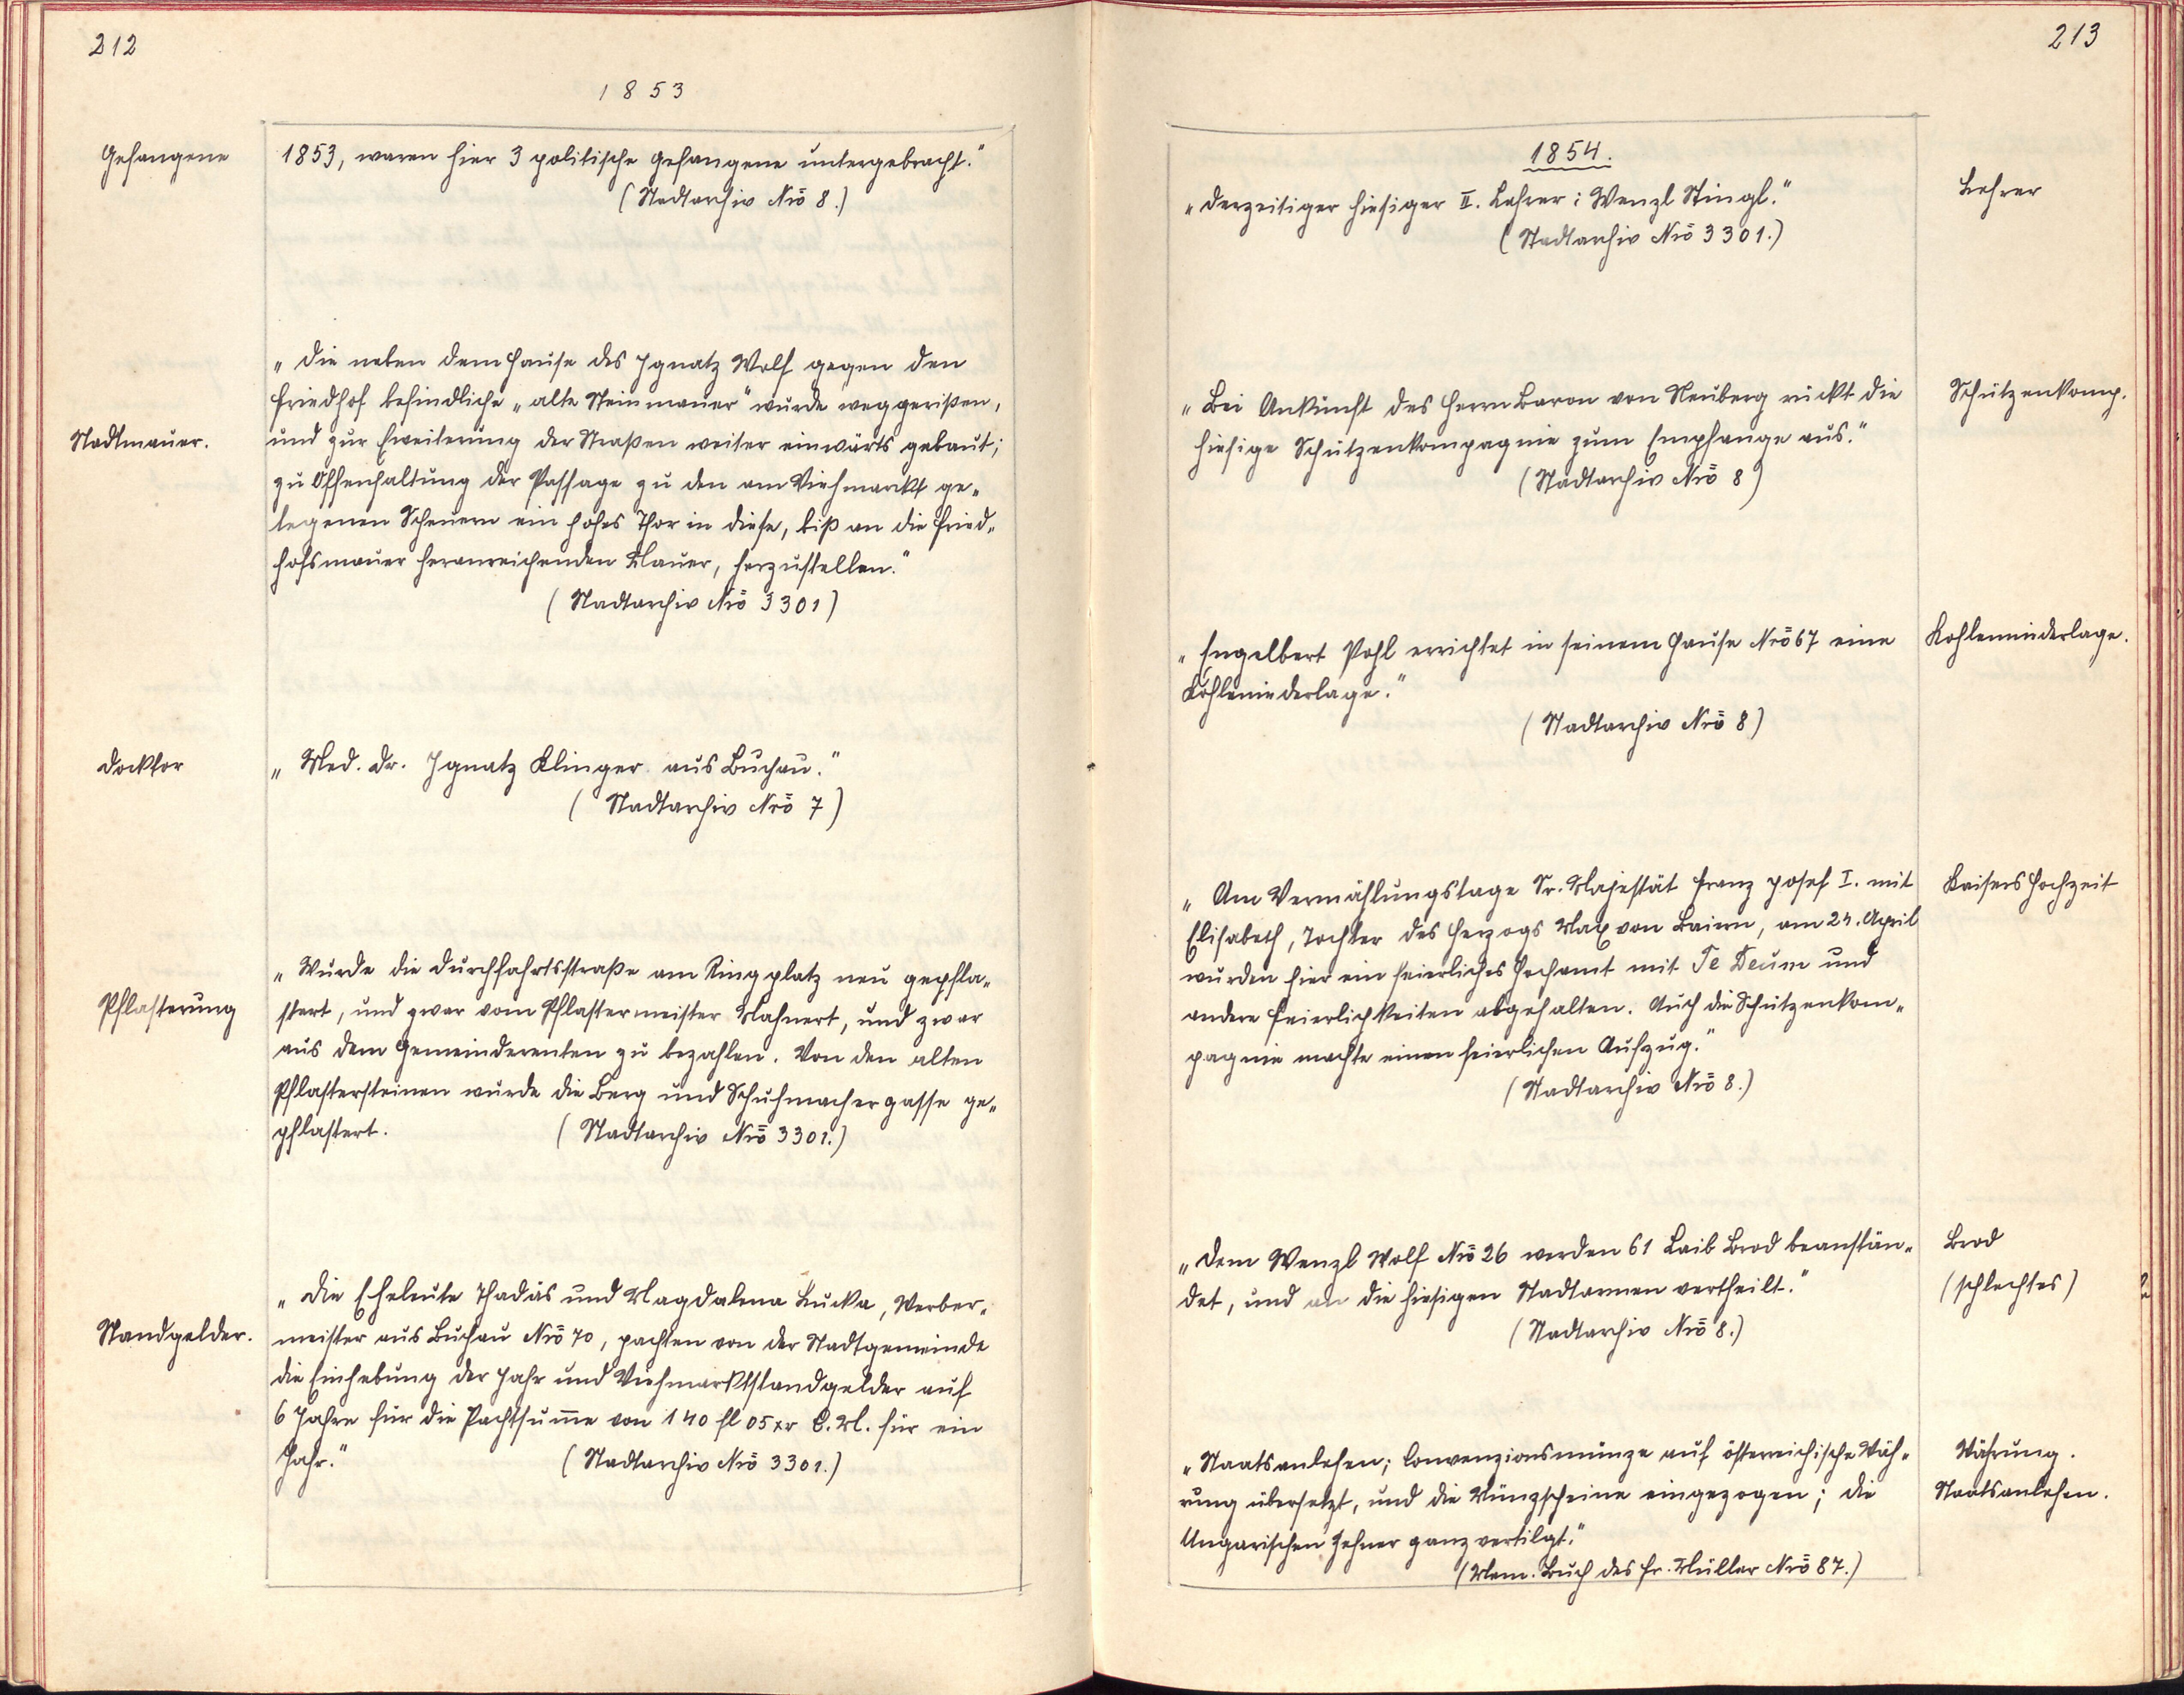 212
1853
Gefangene
1853, waren hier 3 politische Gefangene untergebracht."
(Stadtarchiv Nrō 8.)
„Die neben dem Hause des Ignatz Wolf gegen den
Friedhof befindliche „alte Steinmauer" wurde weggerißen,
Stadtmauer.
und zur Eweiterung der Straßen weiter einwärts gebaut;
zu Offenhaltung der Passage zu den am Viehmarckt ge„
legenen Scheuern ein hohes Thor in diese, biß an die Fried„
hofsmauer heranreichenden Mauer, herzustellen."
(Stadtarchiv Nrō 3301)
Docktor
„Med. Dr. Ignatz Klinger aus Buchau."
(Stadtarchiv Nrō 7)
„Wurde die Durchfahrtsstraße am Ringplatz neu gepfla„
Pflasterung
stert, und zwar vom Pflastermeister Mahnert, und zwar
aus dem Gemeinderenten zu bezahlen. Von den alten
Pflastersteinen wurde die Berg und Schuhmachergasse ge„
pflastert. (Stadtarchiv Nrō 3301.)
„Die Eheleute Thadäs und Magdalena Lucka, Weber„
Standgelder.
meister aus Buchau Nrō 70, pachten von der Stadtgemeinde
die Einhebung der Jahr und Viehmarktstandgelder auf
6 Jahre für die Pachtsum̅e von 140 fl 05 xr C.M. für ein
Jahr." (Stadtarchiv Nrō 3301.)
213
1854.
„Derzeitiger hiesiger II. Lehrer: Wenzl Stingl."
Lehrer
(Stadtarchiv Nrō 3301.)
„Bei Ankunft des Herrn Baron von Neuberg rückt die
Schützenkomp.
hiesige Schützenkompagnie zum Empfange aus."
(Stadtarchiv Nrō 8)
„Engelbert Pohl errichtet in seinem Hause Nrō 67 eine
Kohlenniederlage.
Kohleniederlage."
(Stadtarchiv Nrō 8)
„Am Vermählungstage Sr. Majestät Franz Josef I. mit
Kaisers Hochzeit
Elisabeth, Tochter des Herzogs Max von Baiern, am 24. April
wurden hier ein feierliches Hochamt mit Te Deum und
andere Feierlichkeiten abgehalten. Auch die Schützenkom„
pagnie machte einen feierlichen Aufzug."
(Stadtarchiv Nrō 8.)
„Dem Wenzl Wolf Nrō 26 werden 61 Laib Brod beanstän„
Brod
det, und an die hiesigen Stadtarmen vertheilt."
(schlechtes)
(Stadtarchiv Nrō 8.)
„Staatsanlehen; Convenzionsmünze auf österreichische Wäh„
Währung.
rung übersetzt, und die Münzscheine eingezogen; die
Staatsanlehen.
Ungarischen Zehner ganz vertilgt."
(Mem. Buch des Fr. Müller Nrō 87.)